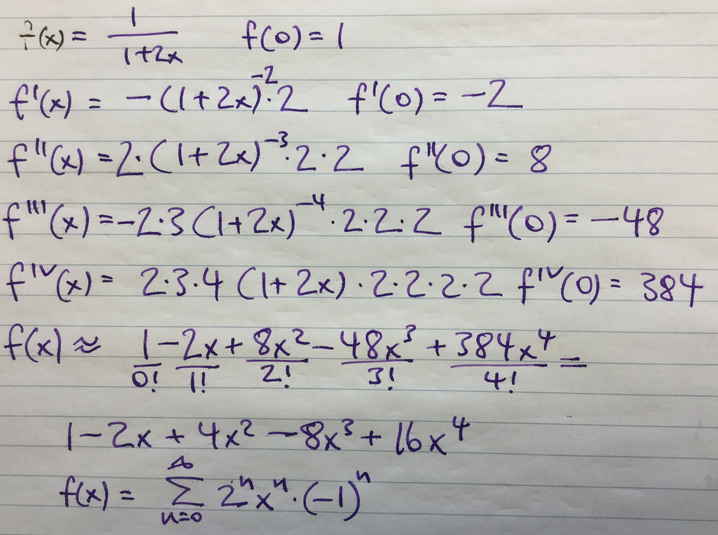 f(x) = 1/(1+2x) f(0) = 1
f'(x) = -(1+2x)^-2 · 2 f'(0) = -2
f''(x) = 2·(1+2x)^-3 · 2·2 f''(0) = 8
f'''(x) = -2·3(1+2x)^-4 · 2·2·2 f'''(0) = -48
f^IV(x) = 2·3·4(1+2x)·2·2·2·2 f^IV(0) = 384
f(x) ≈ 1/0! - 2x/1! + 8x^2/2! - 48x^3/3! + 384x^4/4! =
1 - 2x + 4x^2 - 8x^3 + 16x^4
f(x) = ∑_{n=0}^{∞} 2^n x^n · (-1)^n